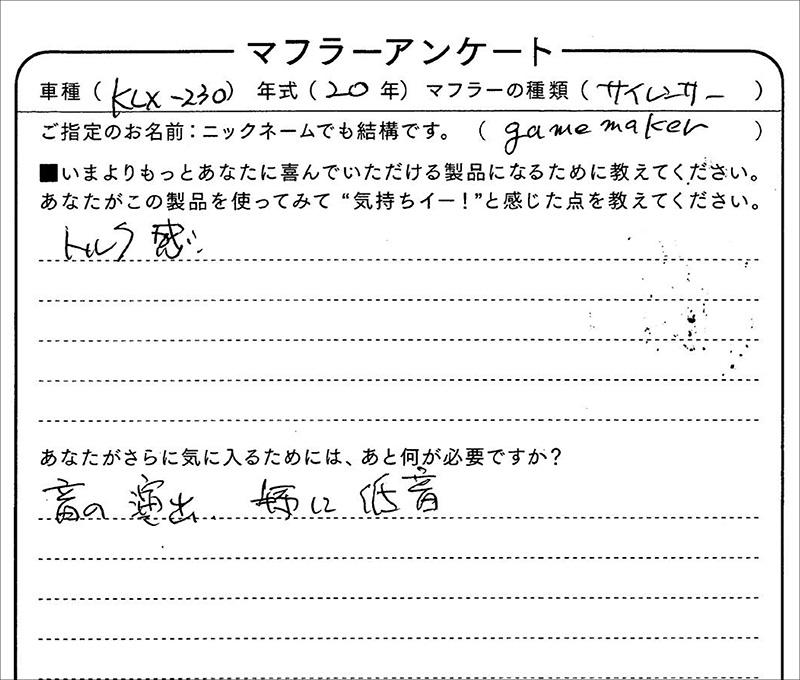 マフラーアンケート
車種（KLX-230）年式（20年）マフラーの種類（サイレンサー）
ご指定のお名前：ニックネームでも結構です。（gamemaker）
■いまよりもっとあなたに喜んでいただける製品になるために教えてください。
あなたがこの製品を使ってみて“気持ちイー！”と感じた点を教えてください。
トルク感
あなたがさらに気に入るためには、あと何が必要ですか？
音の演出 特に低音